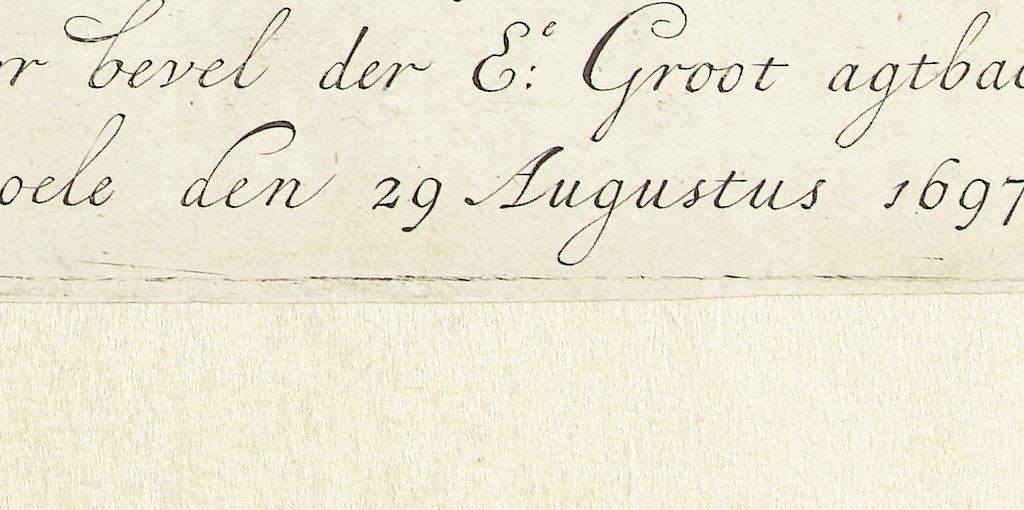 r bevel der E:e Groot agtba
oele den 29 Augustus 1697